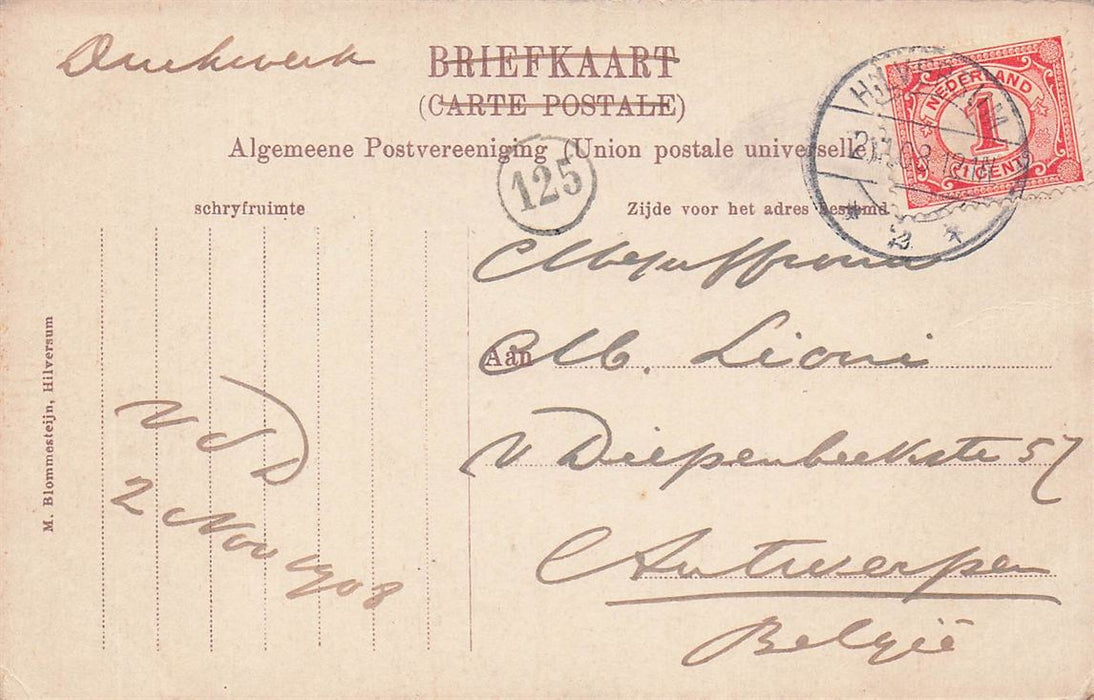 Drukwerk
BRIEFKAART
(CARTE POSTALE)
Algemeene Postvereeniging (Union postale universelle)
NEDERLAND
1
1 CENT
HILVERSUM
2
125
schryfruimte
Zijde voor het adres bestemd
Mejuffrouw
Aan M. Lioni
v Diepenbeekstr 57
Antwerpen
België
v J D
2 Nov 1908
M. Blommesteijn, Hilversum